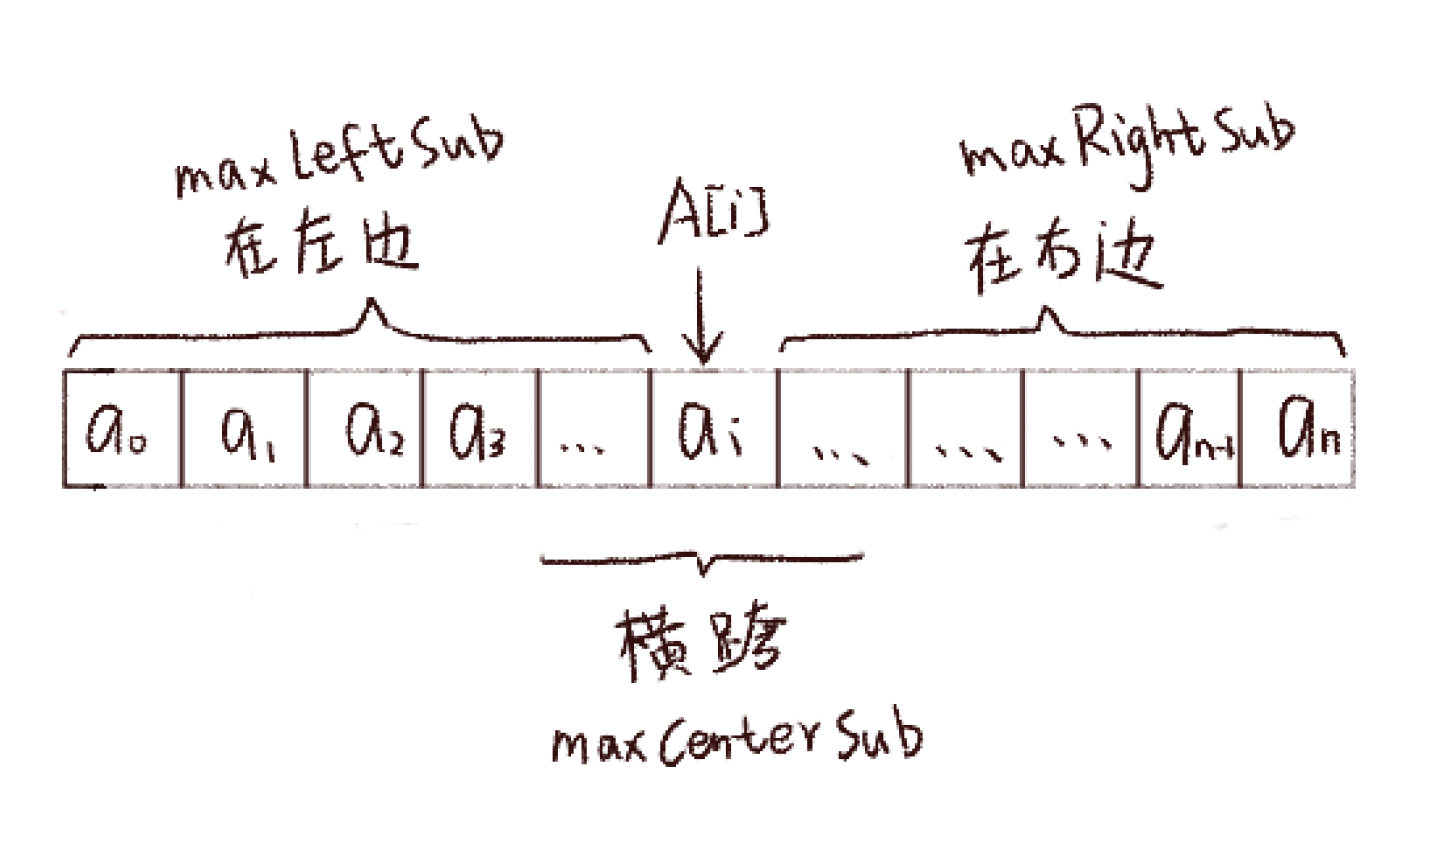 maxLeftSub
在左边
A[i]
maxRightSub
在右边
a₀ a₁ a₂ a₃ ... aᵢ ... ... ... aₙ₋₁ aₙ
横跨
maxCenterSub